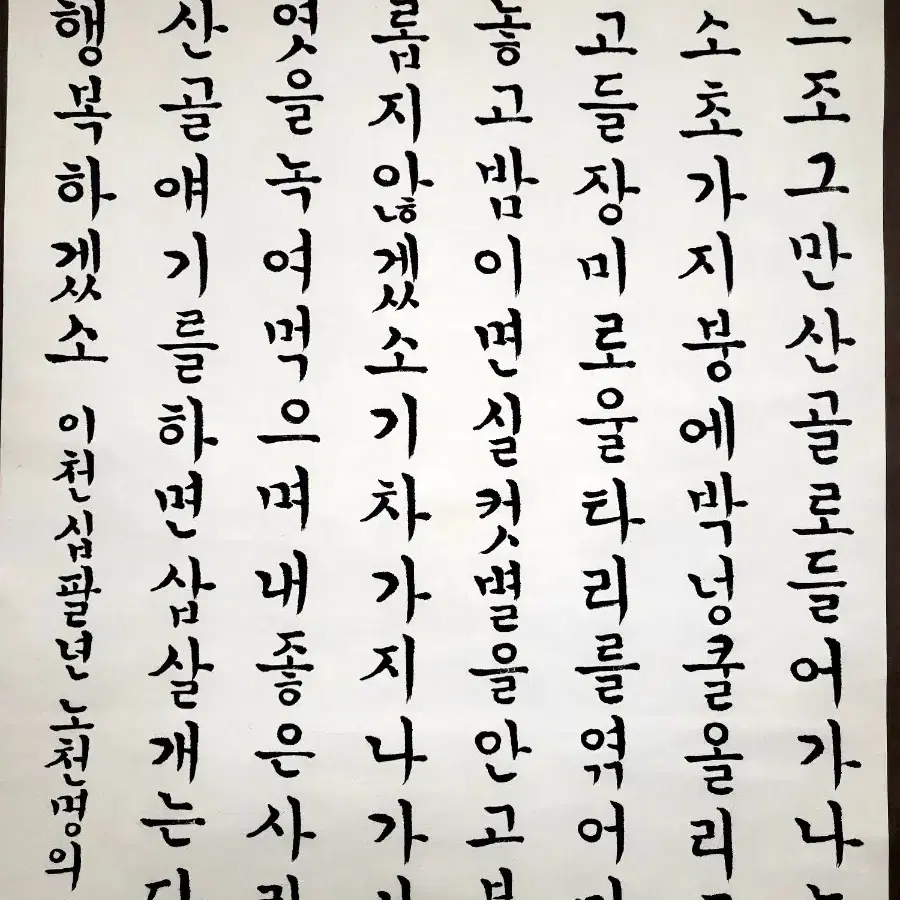 느조그만산골로들어가나
소초가지붕에박넝쿨올리
고들장미로울타리를엮어
놓고밤이면실컷별을안고
롭지않겠소기차가지나가
엿을녹여먹으며내좋은사
산골얘기를하면삽살개는
행복하겠소 이천십팔년 노천명의